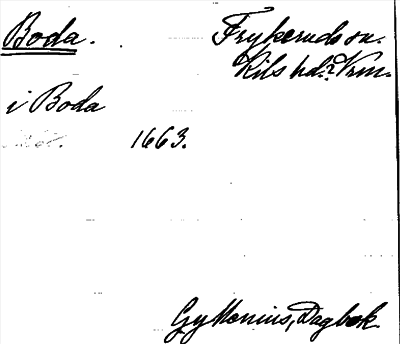 Boda. Frykeruds sn.
Kils hd. Vrm.
i Boda
1663.
Gyllenius, Dagbok.